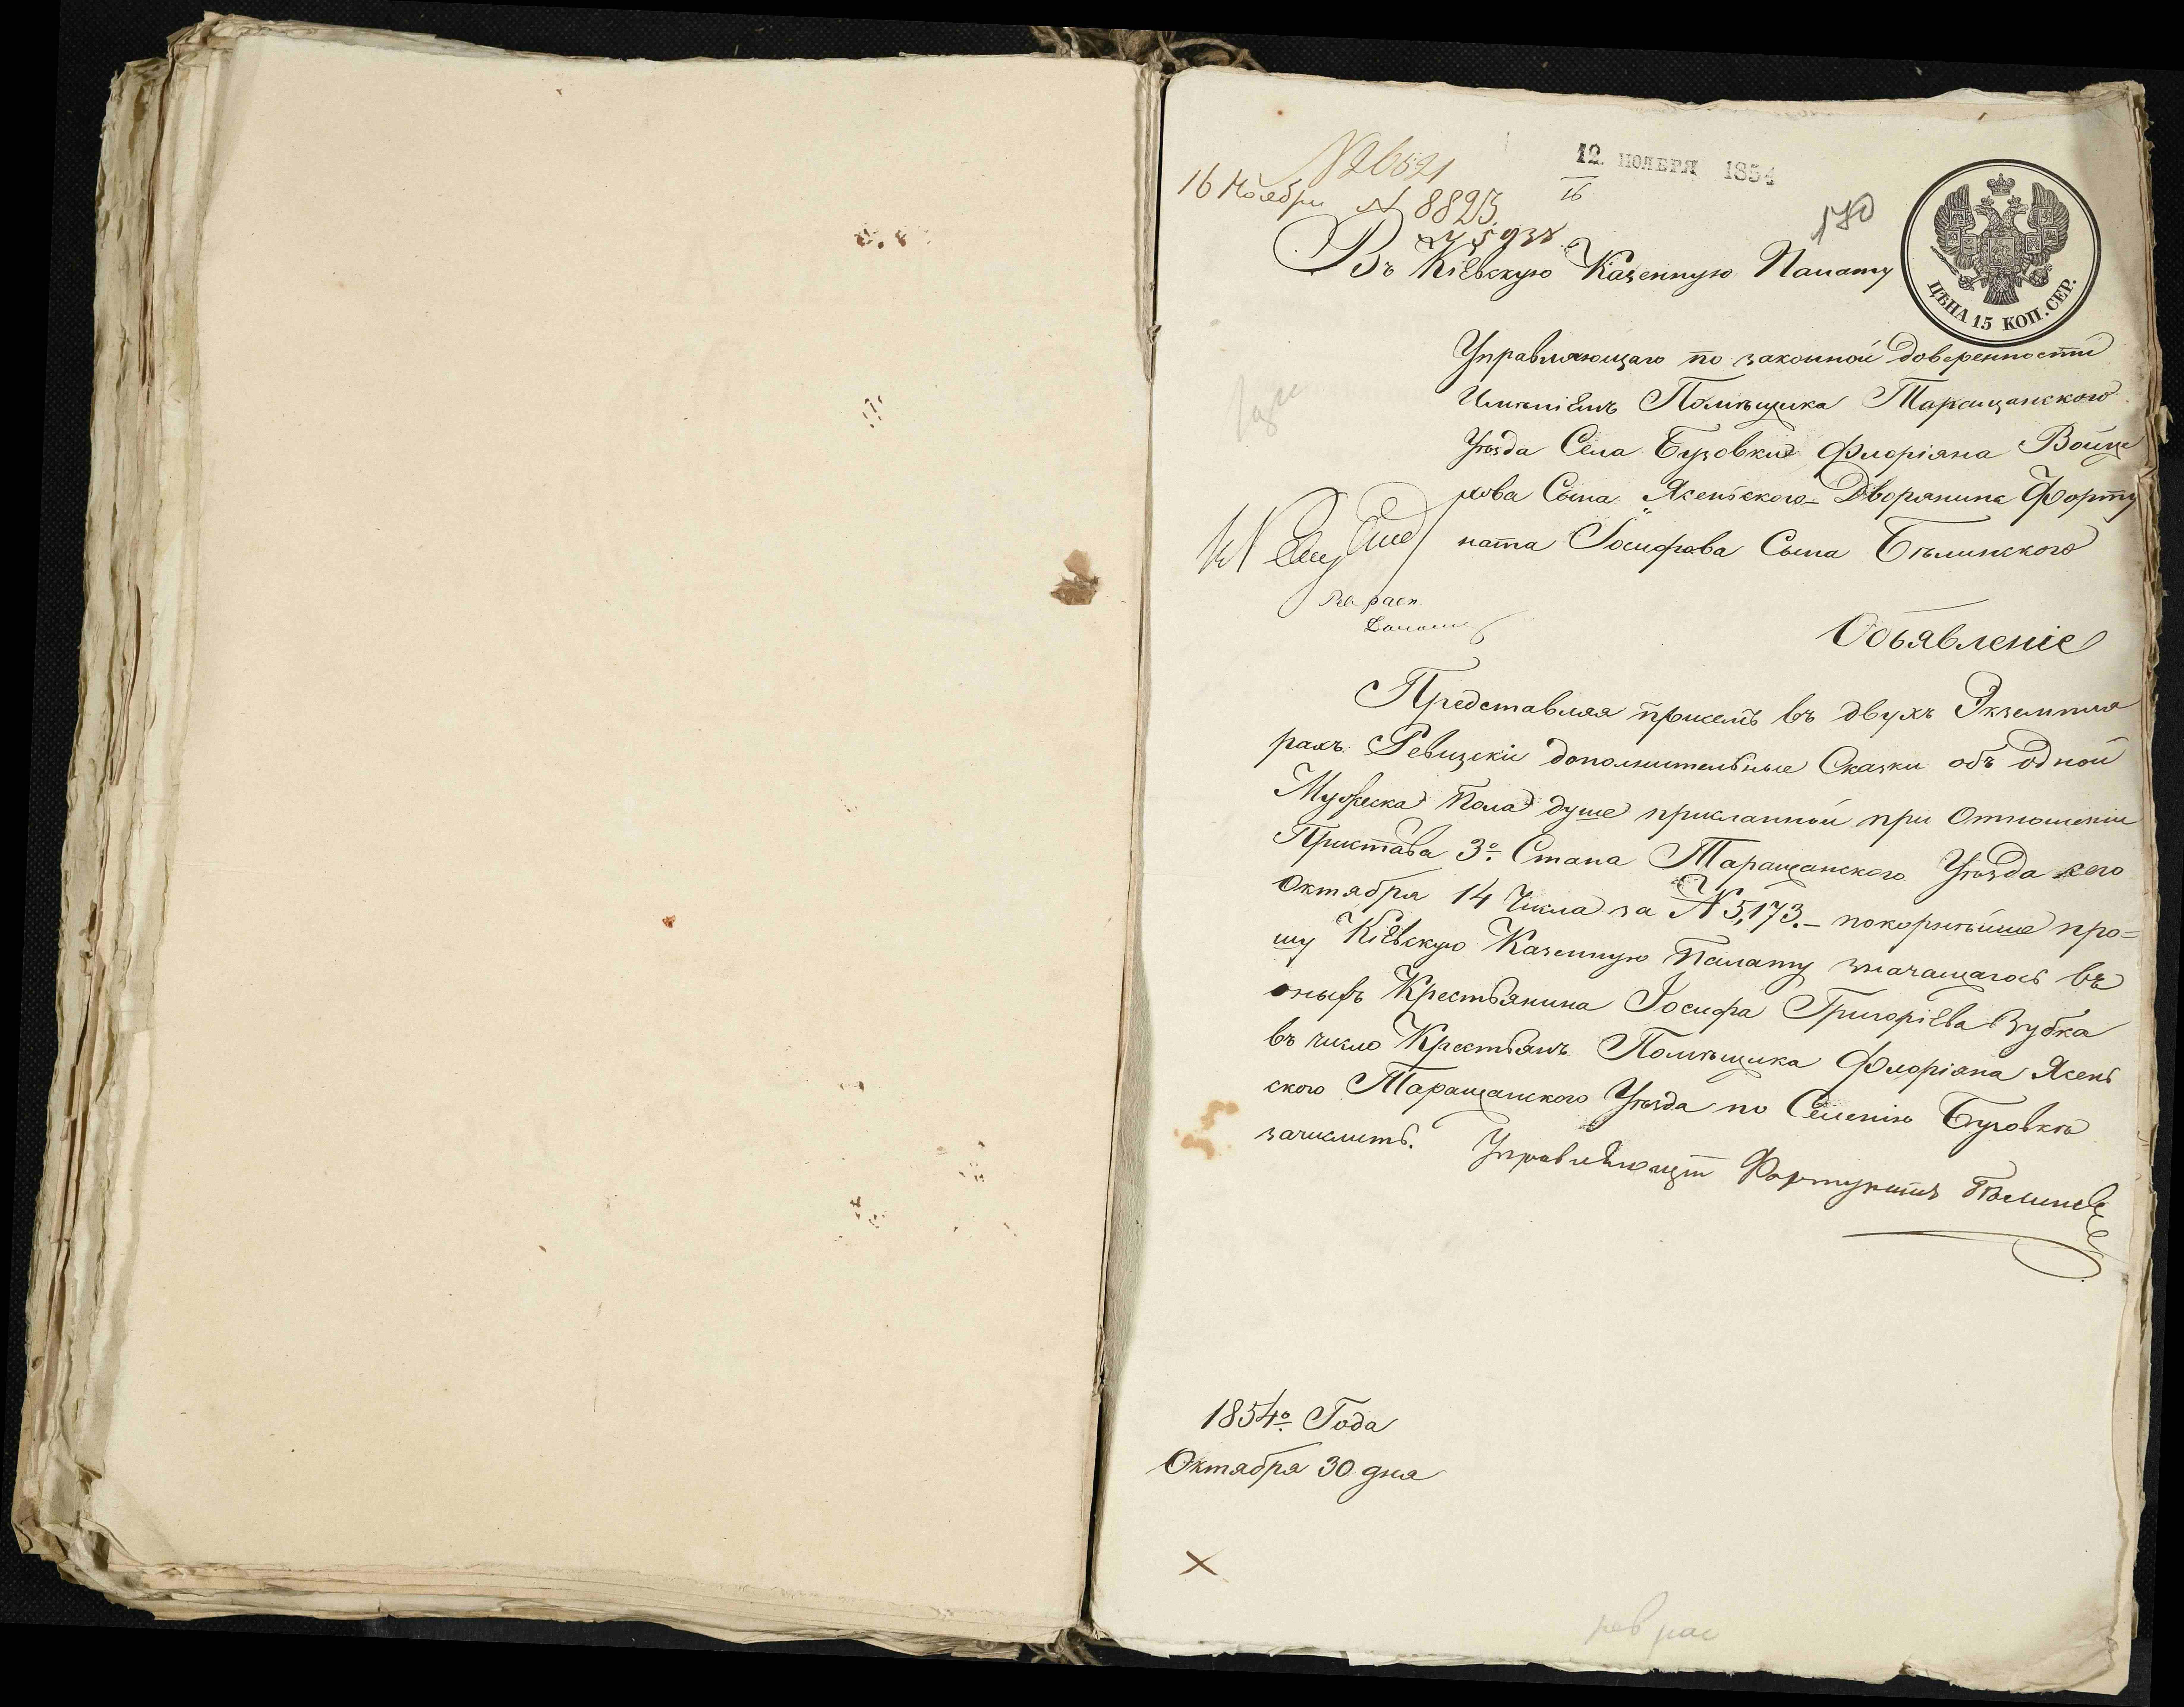 12 НОЯБРЯ 1854
16
16 Ноября № 8823
170
ЦѢНА 15 КОП. СЕР.
Въ Кіевскую Казенную Палату
Управляющаго по законной доверенности
Имѣніемъ Помѣщика Таращанскаго
Уѣзда Села Бузовки Флоріана Войце
хова Сына Ясенского Дворянина Форту
ната Іосифова Сына Бѣлинского
Объявленіе
Представляя присемъ въ двухъ Экземпля
рахъ Ревизскіе дополнительные Сказки объ одной
Мужеска пола душе присланной при Отношеніи
Пристава 3º Стана Таращанского Уѣзда сего
Октября 14 Числа за № 5,173. – покорнѣйше про=
шу Кіевскую Казенную Палату значащагось въ
оныхъ Крестьянина Іосифа Григоріева Зубка
въ число Крестьянъ Помѣщика Флоріана Ясень
ского Таращанского Уѣзда по Селенію Бузовкѣ
зачислить. Управляющій Фортунатъ Бѣлинскій
1854º Года
Октября 30 дня
рев рас